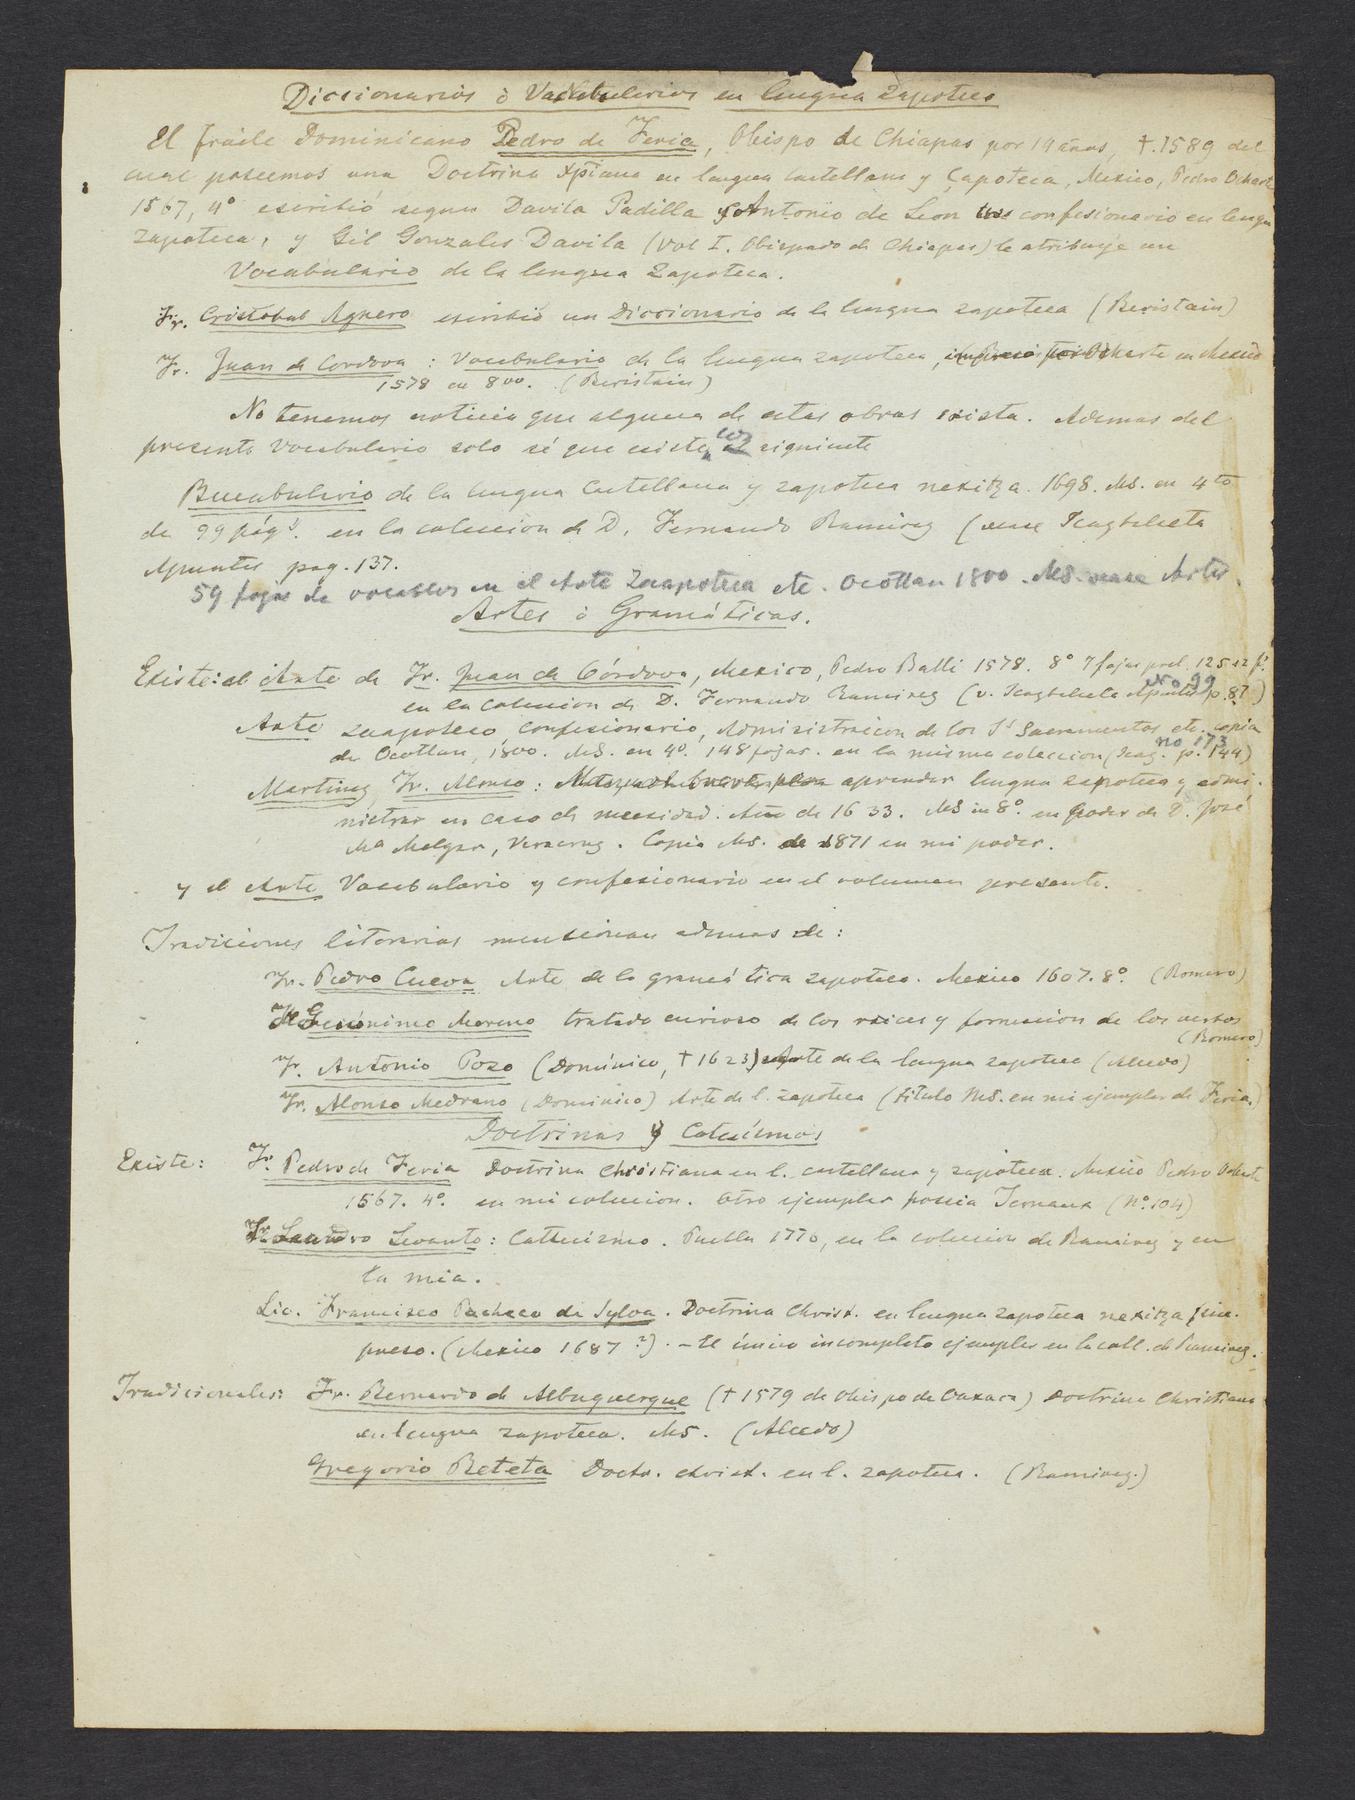 Diccionarios ò Vocabularios en lengua Zapoteca
El fraile Dominicano Pedro de Feria, Obispo de Chiapas por 14 años, †.1589 del
cual poseemos una Doctrina Xpiana en lengua castellana y Çapoteca, Mexico, Pedro Ocharte
1567, 4º escribió segun Davila Padilla y Antonio de Leon un confesionario en lengua
zapoteca, y Gil Gonzales Davila (Vol I. Obispado de Chiapas) le atribuye un
Vocabulario de la lengua Zapoteca.
Fr. Cristobal Aguero escribió un Diccionario de la lengua zapoteca (Beristain)
Fr. Juan de Cordova : Vocabulario de la lengua zapoteca, impreso por Ocharte en Mexico
1578 en 8vo. (Beristain)
No tenemos noticia que alguna de estas obras exista. Ademas del
presente Vocabulario solo sé que existe los siguiente
Bucabulario de la lengua Castellana y zapoteca nexitza. 1698. MS. en 4to
de 99 págs. en la coleccion de D. Fernando Ramirez (vease Icazbalceta
Apuntes pag. 137.
59 fojas de vocablos en el Arte Zaapoteca etc. Ocotlan 1800. MS. vease Artes.
Artes ò Gramáticas.
Existe: el Arte de Fr. Juan de Córdova, Mexico, Pedro Balli 1578. 8º 7 fojas prel. 125
en la coleccion de D. Fernando Ramirez (v. Icazbalceta Apuntes p. 87) No 99
Arte zaapoteco, confesionario, Administracion de los Ss Sacramentos etc. copia
de Ocotlan, 1800. MS. en 4º. 148 fojas. en la misma coleccion (Icaz. p. 144) no 173
Martinez, Fr. Alonso: aprender lengua zapoteca y admi-
nistrar en caso de necesidad. Año de 1633. MS in 8º. en poder de D. José
Mª Melgar, Veracruz. Copia MS. de 1871 en mi poder.
y el Arte Vocabulario y confesionario en el volumen presente.
Tradiciones literarias mencionan ademas de:
Fr. Pedro Cueva Arte de la gramática zapoteca. Mexico 1607. 8º. (Romero)
Gerónimo Moreno tratado curioso de las raices y formacion de los verbos
(Romero)
Fr. Antonio Pozo (Dominico, † 1623) Arte de la lengua zapoteca (Alcedo)
Fr. Alonso Medrano (Dominico) Arte de l. zapoteca (titulo MS. en mi ejemplar de Feria.)
Doctrinas y Catecismos
Existe: Fr. Pedro de Feria Doctrina Christiana en l. castellana y zapoteca. Mexico Pedro Ocharte
1567. 4º. en mi coleccion. Otro ejemplar poseia Ternaux (Nº. 104)
Fr. Leandro Levanto: Cathecismo. Puebla 1770, en la coleccion de Ramirez y en
la mia.
Lic. Francisco Pacheco de Sylva. Doctrina Christ. en lengua zapoteca nexitza
preso. (Mexico 1687?) - el único incompleto ejemplar en la coll. de Ramirez.
Tradicionales: Fr. Bernardo de Albuquerque († 1579 de Obispo de Oaxaca) Doctrina Christiana
en lengua zapoteca. MS. (Alcedo)
Gregorio Beteta Doctr. christ. en l. zapoteca. (Ramirez.)